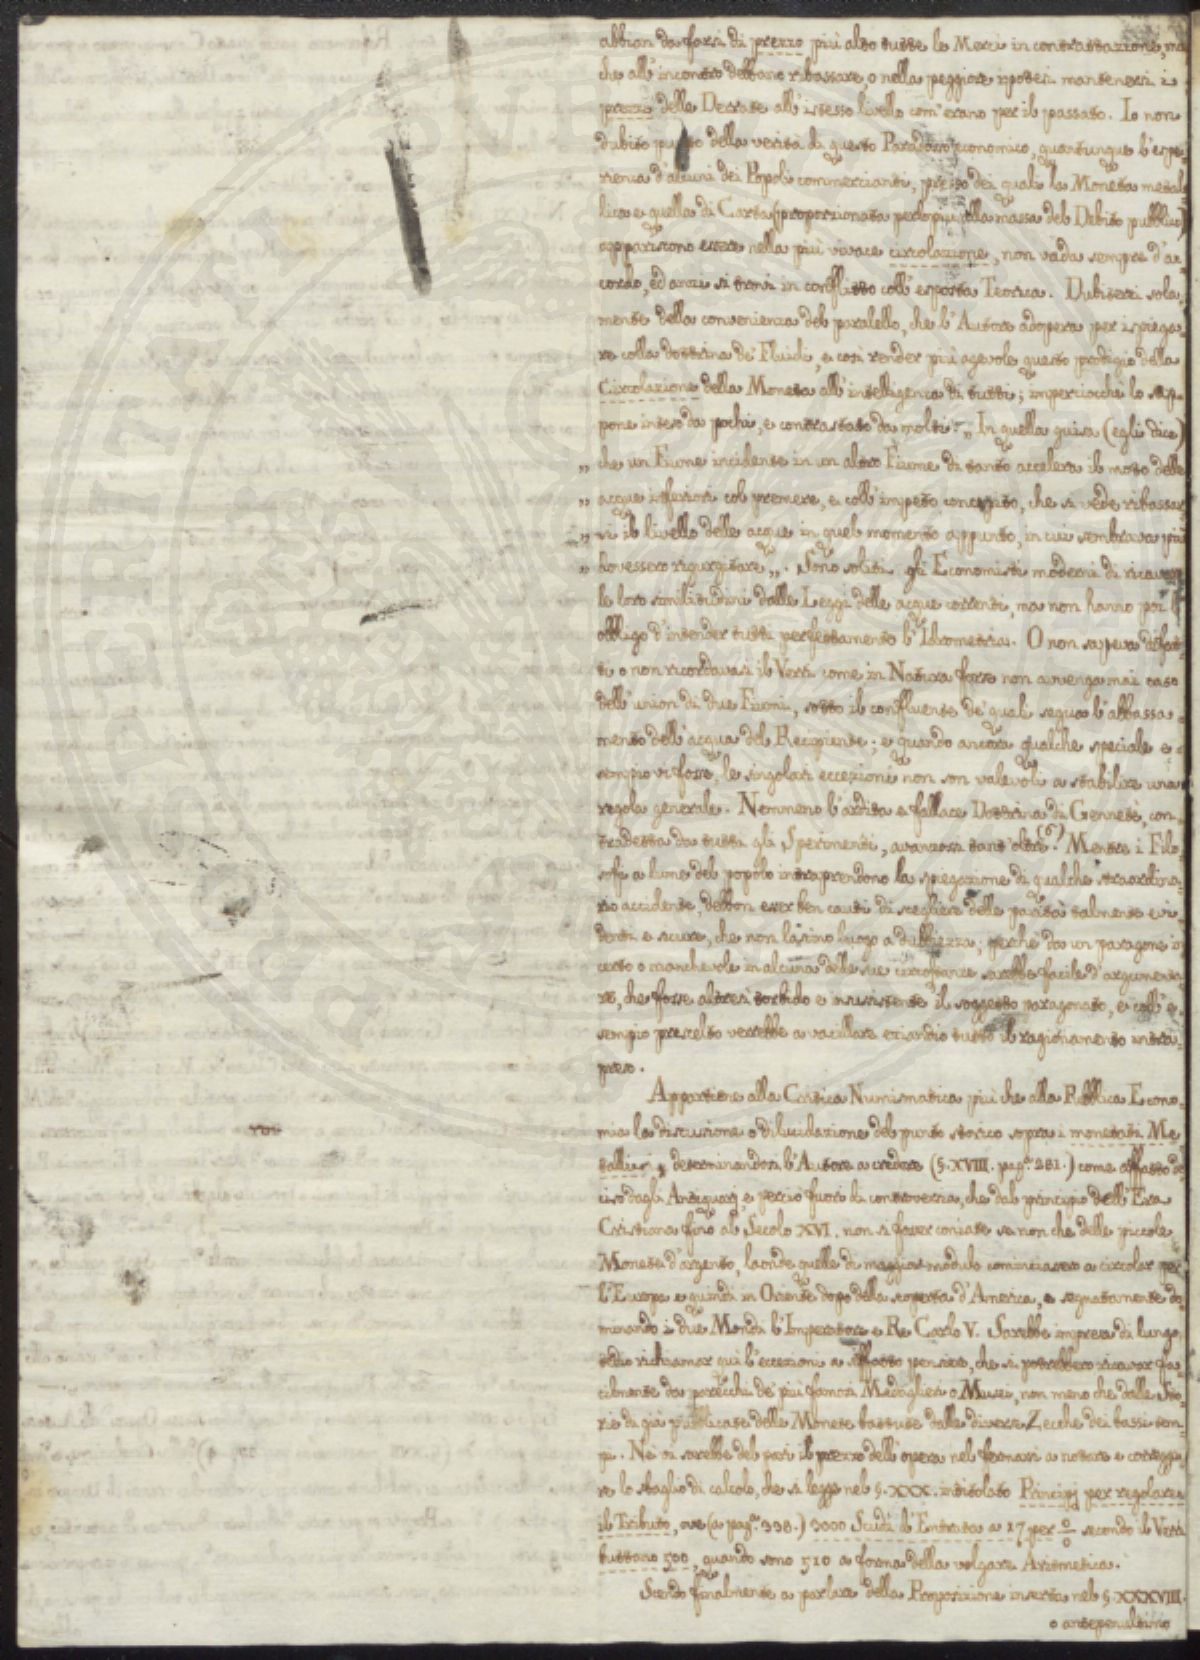 abbian da farsi di prezzo più alto tutte le Merci in contrattazione, ma
che all'incontro debbano ribassare, o nella peggiore ipotesi mantenersi i
prezzi delle Derrate all'istesso livello com'erano per il passato. Io non
dubito punto della verità di questo Paradosso economico, quantunque l'espe-
rienza d'alcuni dei Popoli commercianti, presso dei quali la Moneta metal-
lica e quella di Carta (proporzionata perlopiù alla massa del Debito pubblico)
appariscono essere nella più vivace circolazione, non vada sempre d'ac-
cordo, ed anzi si trovi in conflitto coll'esposta Teorica. Dubiterei sola-
mente della convenienza del paralello, che l'Autore adopera per ispiega-
re colla dottrina de' Fluidi, e così render più agevole questo prodigio della
Circolazione della Moneta all'intelligenza di tutti; imperciocchè lo sup-
pone inteso da pochi, e contrastato da molti: „ In quella guisa (egli dice)
„ che un Fiume incidente in un altro Fiume di tanto accelera il moto delle
„ acque inferiori col premere, e coll'impeto concepito, che si vede ribassar-
„ si il livello delle acque in quel momento appunto, in cui sembrava più
„ dovessero rigurgitare „. Sono soliti gli Economisti moderni di ricavare
le loro similitudini dalle Leggi delle acque correnti, ma non hanno poi l'
obbligo d'intender tutti perfettamente l'Idrometria. O non sapeva difat-
ti o non ricordavasi il Verri come in Natura forse non avvenga mai caso
dell'union di due Fiumi, sotto il confluente de' quali segua l'abbassa-
mento dell'acqua del Recipiente; e quando ancora qualche speciale e-
sempio vi fosse, le singolari eccezioni non son valevoli a stabilire una
regola generale. Nemmeno l'ardita e fallace Dottrina di Genneté, con-
tradetta da tutti gli Sperimenti, avanzossi tant'oltre (6). Mentre i Filo-
sofi a lume del popolo intraprendono la spiegazione di qualche straordina-
rio accidente, debbon esser ben cauti di scegliere delle parità talmente evi-
denti e sicure, che non lascino luogo a dubbiezza; perchè da un paragone in-
certo o manchevole in alcuna delle sue circostanze sarebbe facile d'argomenta-
re, che forse altresì torbido e insussistente il soggetto paragonato, e coll'e-
sempio prescelto verrebbe a vacillare eziandio tutto il ragionamento intra-
preso.
Appartiene alla Critica Numismatica più che alla Pubblica Econo-
mia la discussione o dilucidazione del punto storico sopra i monetati Me-
talli, determinandosi l'Autore a credere (§. XVIII. pag.ª 281.) come affatto de-
ciso dagli Antiquarj, e perciò fuori di controversia, che dal principio dell'Era
Cristiana fino al Secolo XVI. non si fosser coniate se non che delle piccole
Monete d'argento, laonde quelle di maggior modulo cominciarono a circolar per
l'Europa e quindi in Oriente dopo della scoperta d'America, e segnatamente do-
minando i due Mondi l'Imperatore e Re Carlo V. Sarebbe impresa di lungo
tedio richiamar qui l'eccezioni a siffatto pensiere, che si potrebbero ricavar fa-
cilmente da parecchi de' più famosi Medaglieri o Musei, non meno che dalle Sto-
rie di già pubblicate delle Monete battute dalle diverse Zecche dei bassi tem-
pi. Nè vi sarebbe del pari il prezzo dell'opera nel fermarsi a notare e corregge-
re lo sbaglio di calcolo, che si legge nel §. XXX. intitolato Principj per regolare
il Tributo, ove (a pag.ª 338.) 3000 Scudi d'Entrata a 17 per 0/0 secondo il Verri
buttano 500, quando sono 510 a forma della volgare Aritmetica.
Scendo finalmente a parlare della Proposizione inserta nel §. XXXVIII.
o antepenultimo